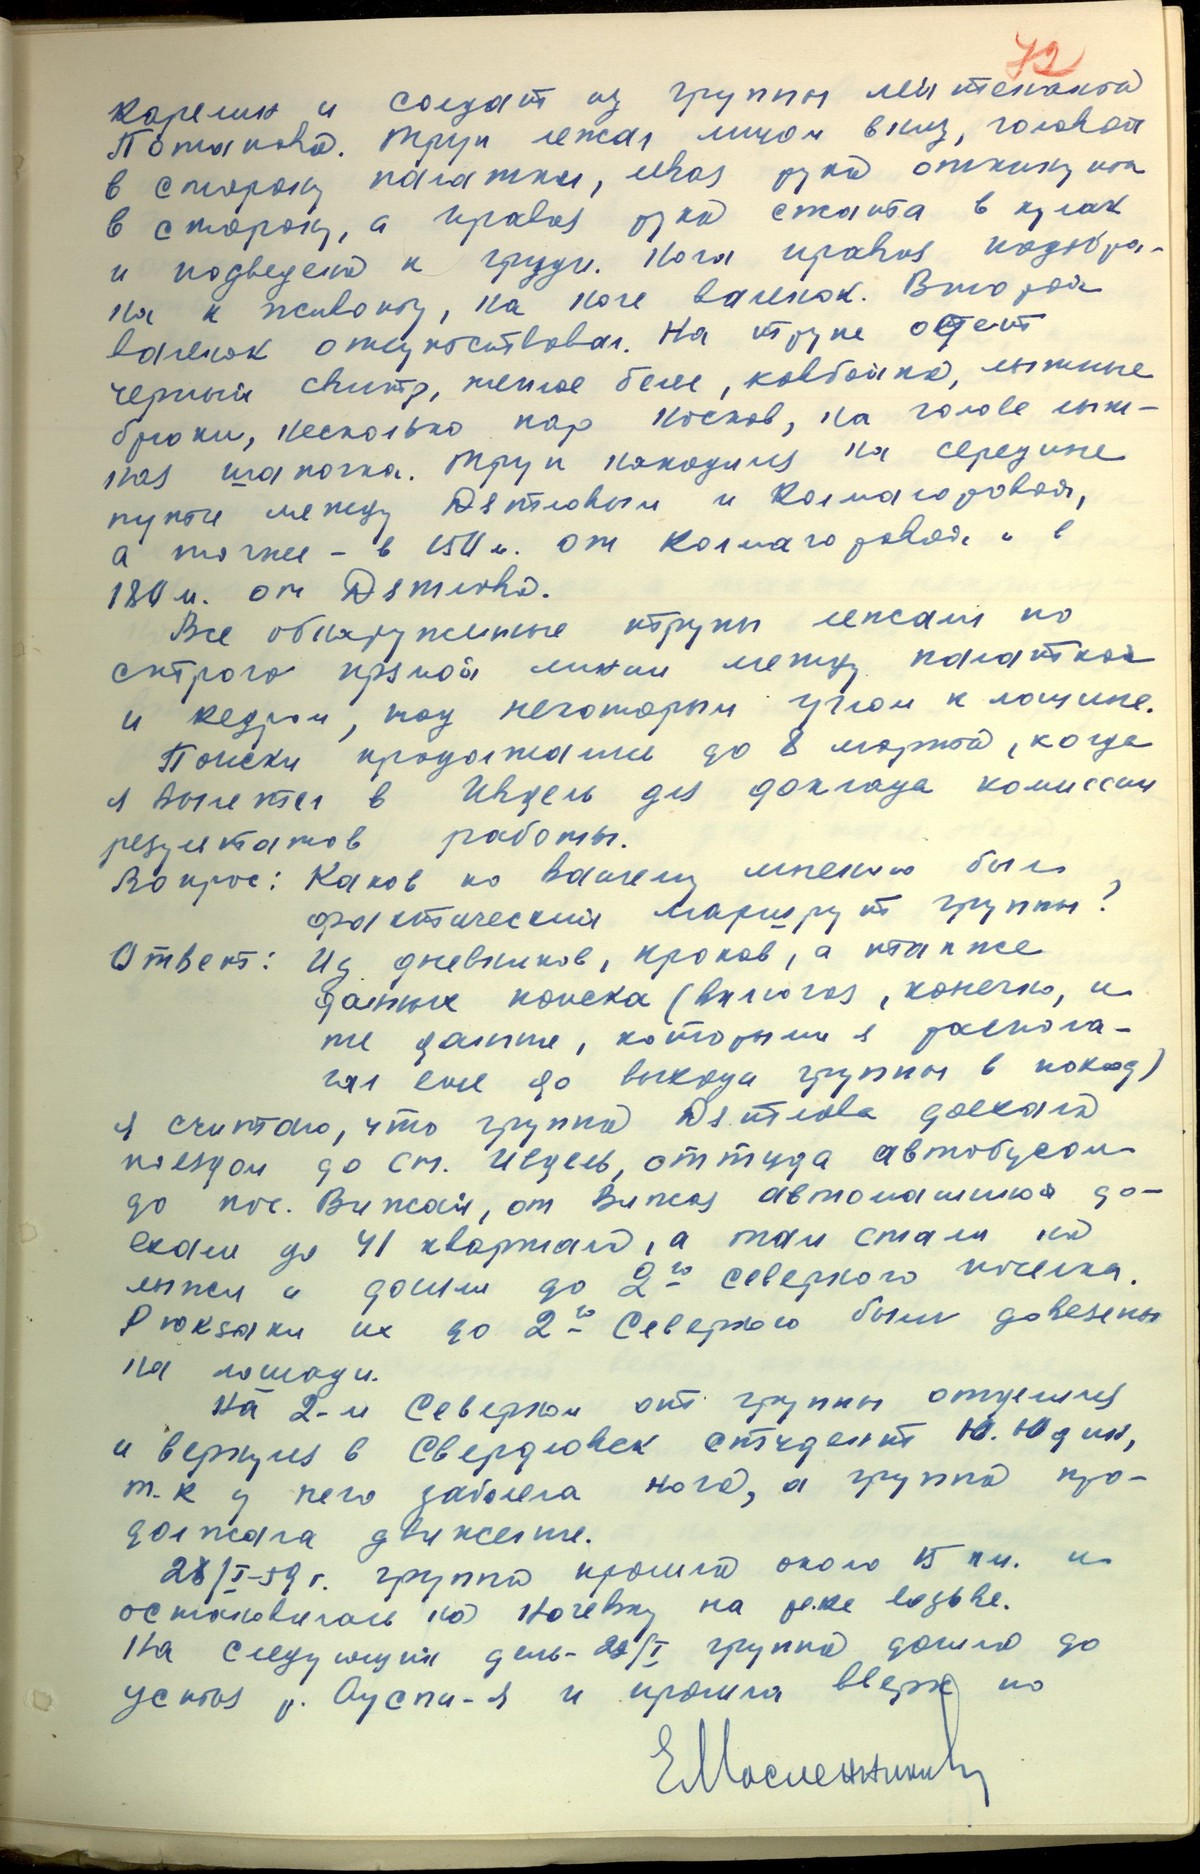 72
Карелин и солдат из группы лейтенанта
Потапова. Труп лежал лицом вниз, головой
в сторону палатки, левая рука откинута
в сторону, а правая рука сжата в кулак
и подведена к груди. Нога правая подобра-
на к животу, на ноге валенок. Второй
валенок отсутствовал. На трупе одет
черный свитр, теплое белье, ковбойка, лыжные
брюки, несколько пар носков, на голове лыж-
ная шапочка. Труп находился на середине
пути между Дятловым и Колмагоровой,
а точнее - в 150 м. от Колмагоровой и в
180 м. от Дятлова.
Все обнаруженные трупы лежали по
строго прямой линии между палаткой
и кедром, под некоторым углом к лощине.
Поиски продолжались до 8 марта, когда
я вылетел в Ивдель для доклада комиссии
результатов работы.
Вопрос: Каков по вашему мнению был
фактический маршрут группы?
Ответ: Из дневников, кроков, а также
данных поиска (включая, конечно, и
те данные, которыми я распола-
гал еще до выхода группы в поход)
я считаю, что группа Дятлова доехала
поездом до ст. Ивдель, оттуда автобусом
до пос. Вижай, от Вижая автомашиной до-
ехали до 41 квартала, а там стали на
лыжи и дошли до 2го Северного поселка.
Рюкзаки их до 2го Северного были довезены
на лошади.
На 2-м Северном от группы отделился
и вернулся в Свердловск студент Ю. Юдин,
т.к у него заболела нога, а группа про-
должала движение.
28/I-59 г. группа прошла около 15 км. и
остановилась на ночевку на реке Лозьве.
На следующий день - 29/I группа дошла до
устья р. Ауспи-я и прошла вверх по
ЕМасленников